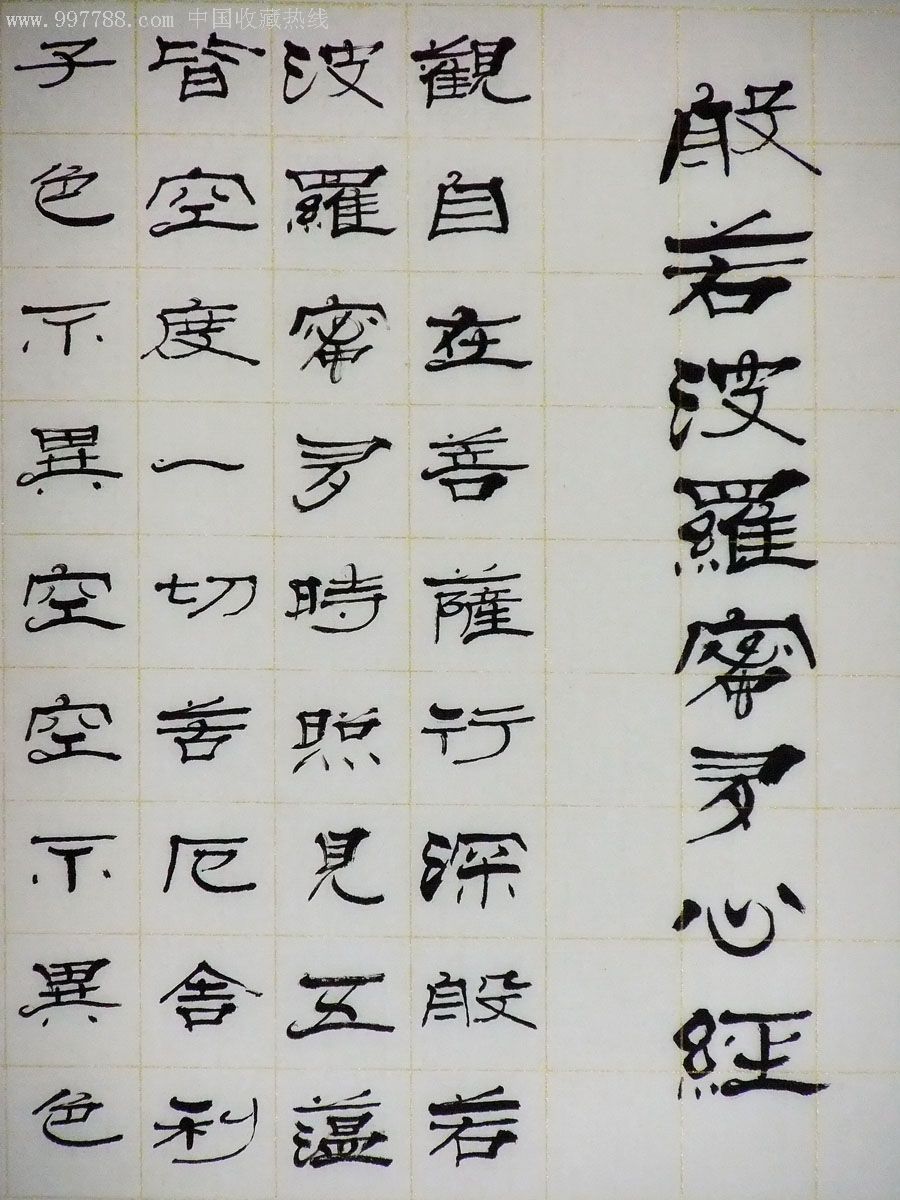 www.997788.com 中国收藏热线
般若波羅蜜多心經
觀自在善薩行深般若
波羅蜜多時照見五蕰
皆空度一切苦厄舍利
子色不異空空不異色